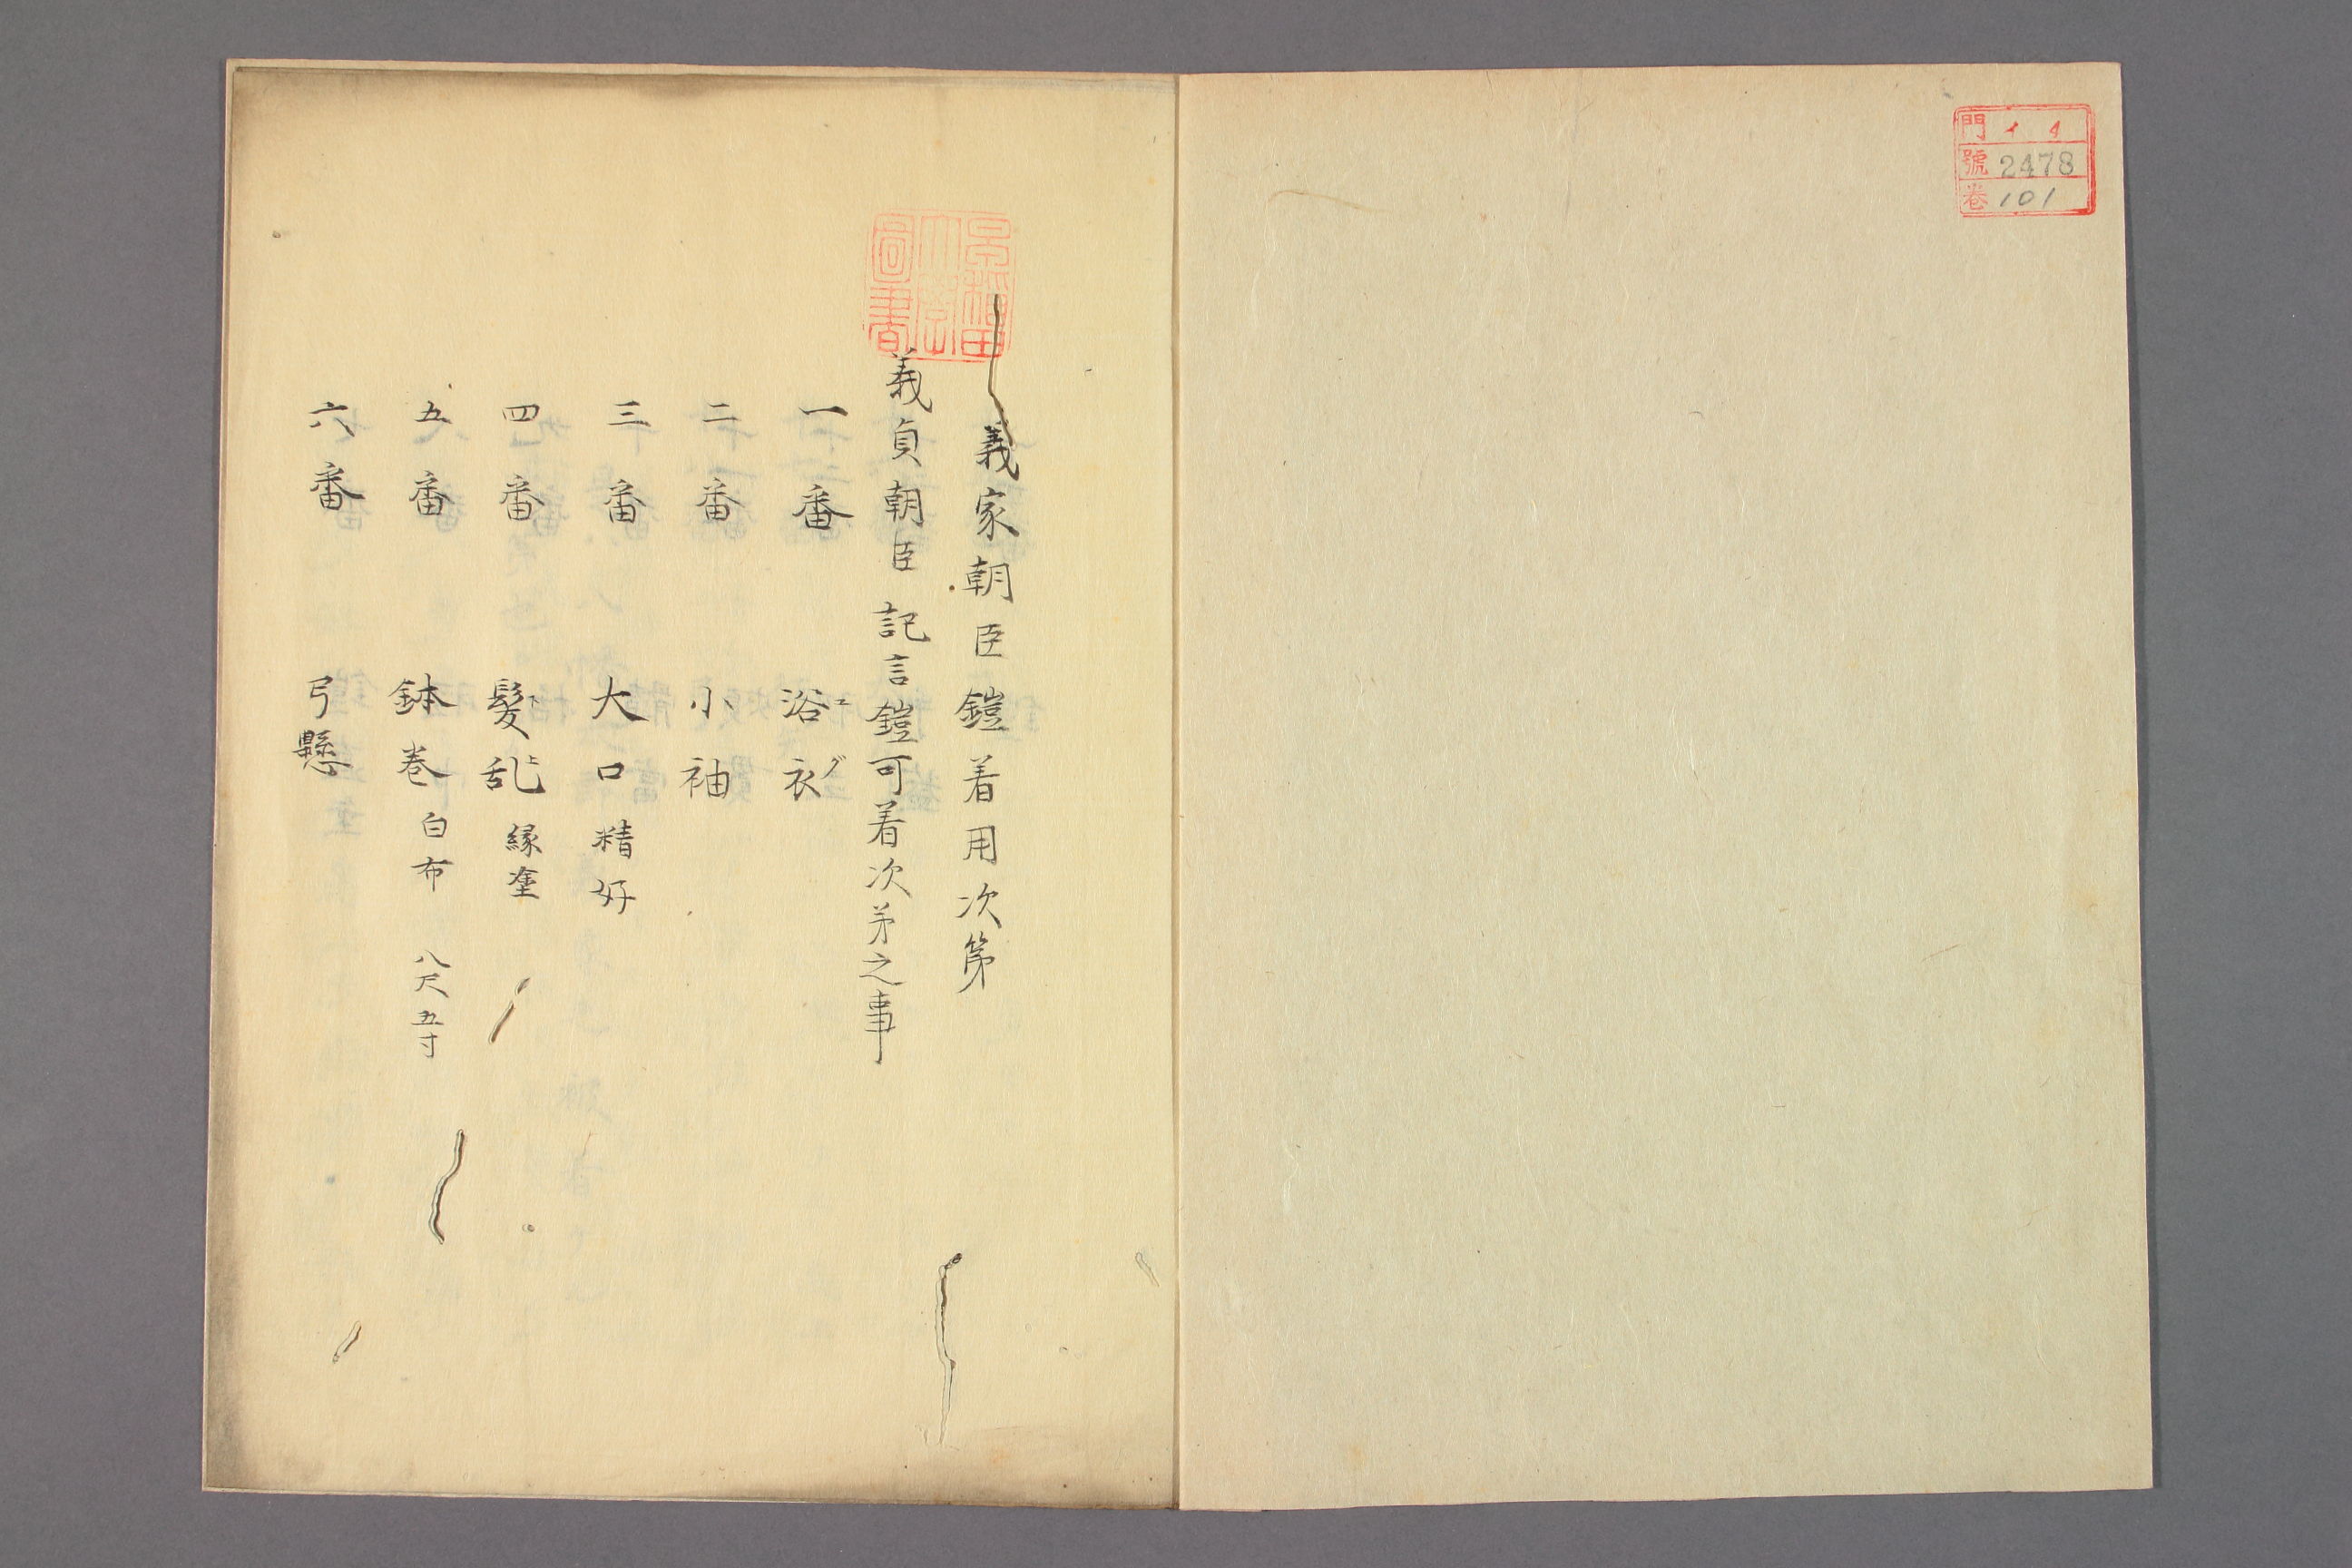 門 イ 4
號 2478
卷 101
早稲田大學圖書
義家朝臣鎧着用次第
義貞朝臣記言鎧可着次第之事
一番 浴衣
二番 小袖
三番 大口精好
四番 髪乱縁塗
五番 鉢巻白布 八尺五寸
六番 弓懸